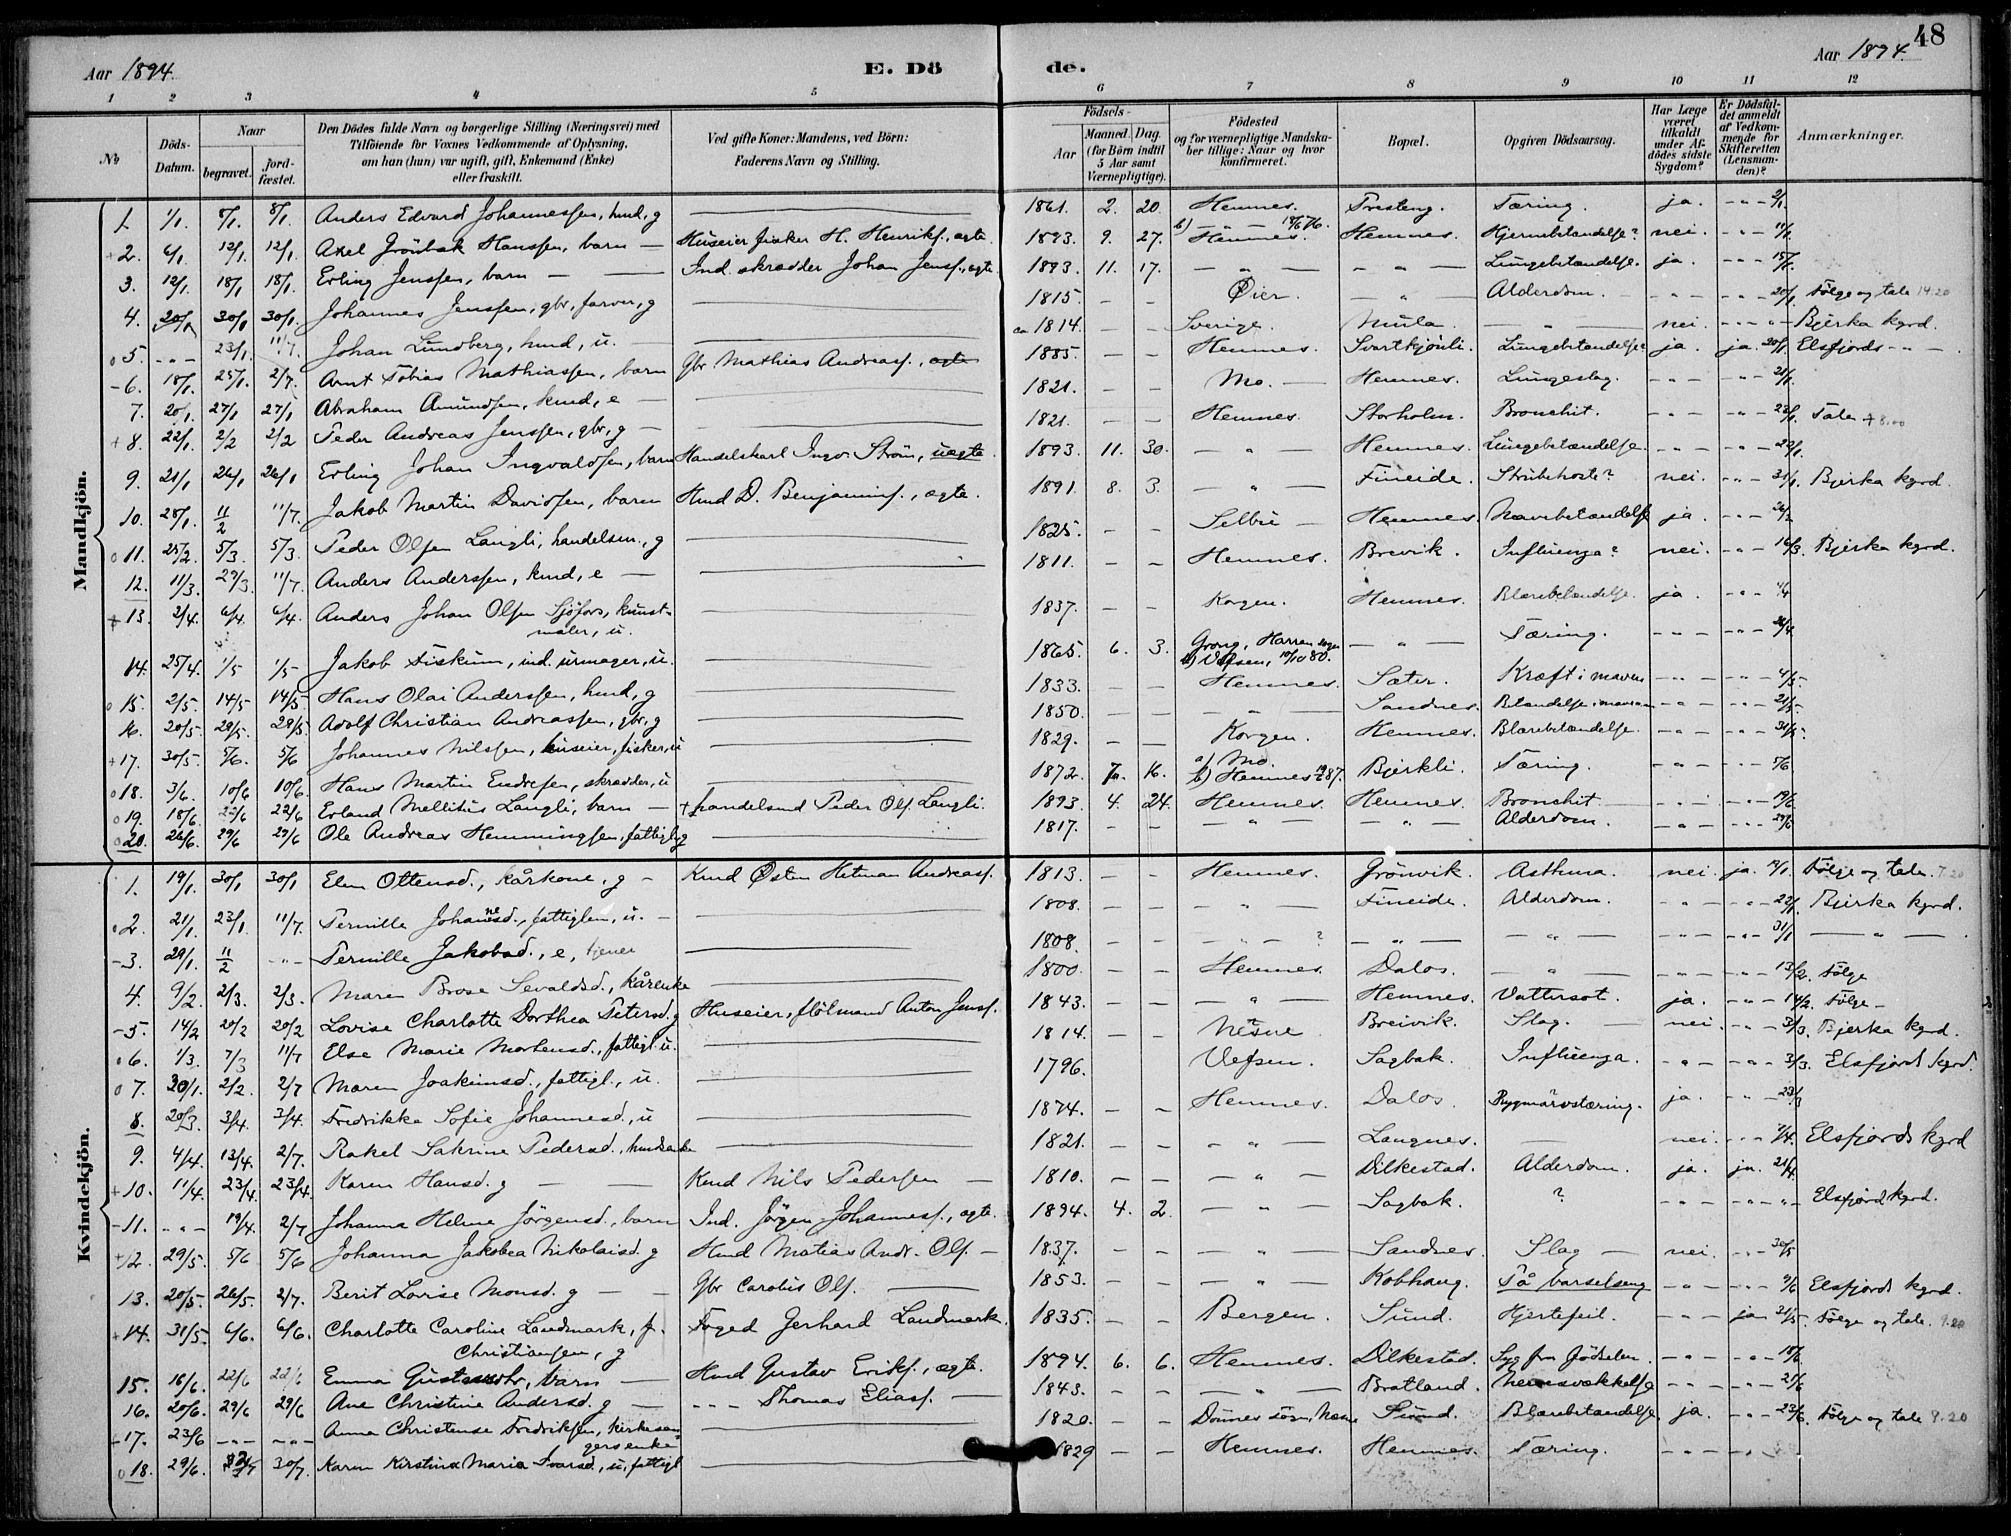 48
Aar 1894. E. Dö de. Aar 1894.
1 2 3 4 5 6 7 8 9 10 11 12
No Döds-Datum. Naar begravet. jordfæstet. Den Dödes fulde Navn og borgerlige Stilling (Næringsvei) med Tilföiende for Voxnes Vedkommende af Oplysning, om han (hun) var ugift, gift, Enkemand (Enke) eller fraskilt. Ved gifte Koner: Mandens, ved Börn: Faderens Navn og Stilling. Födsels- Aar Maaned. Dag. (for Börn indtil 5 Aar samt Værnepligtige). Födested og for værnepligtige Mandskaber tillige: Naar og hvor konfirmeret. Bopæl. Opgiven Dödsaarsag. Har Læge været tilkaldt under Afdödes sidste Sygdom? Er Dödsfaldet anmeldt af Vedkommende for Skifteretten (Lensmanden)? Anmærkninger.
Mandkjön.
1. 1/1. 8/1. 8/1. Anders Edvard Johannessen, hmd, g 1861. 2. 20. Hemnes. Tresteng. Tæring. ja. - " - 2/1.
+ 2. 6/1. 12/1. 12/1. Axel Grönbæk Hanssen, barn — Huseier fisker H. Henriks., ægte 1893. 9. 27. Hemnes. Hemnes. Hjernebetændelse? nei. - " -
3. 12/1. 18/1. 18/1. Erling Jenssen, barn — Ind. skrædder Johan Jens., ægte 1893. 11. 17. — " — — " — Lungebetændelse. ja. - " - 15/1.
4. 20/1 30/1 30/1. Johannes Jenssen, gbr, farver, g 1815. — — Øier. — " — Alderdom. - " - - " - 20/1 Følge og tale 14.20
o 5. - " - 23/1. 11/7. Johan Lundberg, hmd, u. — ca 1814. — — Sverige. Mula. — " — nei. - " - - " - Bjerka kgrd.
- 6. 18/1. 25/1. 2/7. Arnt Tobias Mathiassen, barn Gbr Mathias Andreass., ægte 1885. — — Hemnes. Svartkjönli. Lungebetændelse ja. ja. 20/1. Elsfjords - " -
7. 20/1. 27/1 27/1 Abraham Amundsen, kmd, e — 1821. — — Mo. — Hemnes. Lungeslag. - " - - " - 21/1.
+ 8. 22/1. 2/2 2/2 Peder Andreas Jenssen, gbr, g — 1821. — — Hemnes. Storholm. Bronchit. - " - - " - 23/1. Tale + 8.00
9. 21/1 26/1 26/1 Erling Johan Ingvaldsen, barn Handelskarl Ingv. Ström, uægte 1893. 11. 30. — " — Hemnes. Lungebetændelse - " - - " - 22/1.
10. 28/1. 11/2 11/7. Jakob Martin Davidsen, barn Hmd D. Benjamins., ægte. 1891. 8. 3. — " — Fineide. Strubehoste? nei. - " - 31/1. Bjerka kgrd.
o 11. 25/2. 5/3. 5/3. Peder Olsen Langli, handelsm., g 1825. — — Selbu — Hemnes. Navrebetændelse ja. - " -
12. 11/3. 27/3. 11/7. Anders Anderssen, kmd, e — 1811. — — Hemnes. Brevik. Influenza? nei. - " - 16/3. Bjerka kgrd.
+ 13. 2/4. 6/4. 6/4. Anders Johan Olsen Sjöfors, kunst-
maler, u. 1837. — — Korgen. Hemnes. Blærebetændelse. ja. - " - 4/4
14. 25/4. 1/5 1/5 Jakob Fiskum, ind. urmager, u. 1865. 6. 3. Grong, Harran sogn b) Vefsen, 10/10 80. — " — Tæring. - " - - " - 26/4
o 15. 2/5. 14/5 14/5 Hans Olai Anderssen, hmd, g 1833. — — Hemnes. Sæter. Kræft i maven - " - - " - 4/5.
16. 20/5. 29/5. 29/5. Adolf Christian Andreassen, gbr, g 1850. — — — " — Sandnes. Blændelse i maven - " - - " - 21/5.
+ 17. 30/5. 5/6. 5/6 Johannes Nilssen, huseier, fisker, u 1829. — — Korgen. Hemnes. Blærebetændelse. - " - - " - 31/5.
o 18. 3/6. 10/6 10/6. Hans Martin Endresen, skrædder, u 1872. 7. 16. a) Mo. b) Hemnes 87. Bjerkli. Tæring. - " - - " - 5/6
o 19. 18/6. 22/6 22/6 Erland Mellitus Langli, barn — + handelsmd Peder Ols. Langli. 1893. 4. 24. Hemnes. Hemnes. Bronchit - " - - " - 19/6
o 20. 26/6. 29/6 29/6 Ole Andreas Hemmingsen, fattigl., g 1817. — — — " — — " — Alderdom. - " - - " - 27/6
Kvindekjön.
1. 19/1. 30/1 30/1 Elen Ottensd., kårkone, g — Kmd Østen Hitman Andreass. 1813. — — Hemnes. Grönvik. Asthma. nei. ja. 19/1. Følge og tale. 7.20
o 2. 21/1. 23/1 11/7. Pernille Johannesd., fattiglem, u. — 1808. — — — " — Fineide. Alderdom. - " - - " - 22/1. Bjerka kgrd.
- 3. 29/1. 11/2 - " - Pernille Jakobsd., e, tjener 1808. — — — " — ? — " — — " — - " - - " - 31/1 — " —
4. 9/2. 2/3. 2/3. Maren Brose Sevaldsd., kårenke 1800. — — Hemnes. Dalos. — " — - " - - " - 13/2. Følge
- 5. 14/2 20/2 20/2 Lovise Charlotte Dorthea Petersd. g Huseier, flölmand Anton Jens. 1843. — — — " — Hemnes. Vattersot. ja. - " - 14/2. Følge —
o 6. 1/3. 7/3 11/7 Else Marie Mortensd., fattigl. u. 1814. — — Nesne Breivik. Slag. — nei. - " - 3/3. Bjerka kgrd.
o 7. 30/1. 2/2. 2/7 Maren Joakimsd., fattigl., u. 1796. Vefsen. Sagbak. Influenza. - " - - " - 3/3. Elsfjord kgrd.
8. 20/3. 3/4. 3/4. Fredrikke Sofie Johannesd., u 1874. — — Hemnes. Dalos. Rygmarvstæring. ja. - " - 23/3
9. 4/4. 13/4. 2/7. Rakel Sakrine Pedersd., hmdsenke 1821. — — — " — Langnes. — nei. - " - 7/4. Elsfjords kgrd
+ 10. 11/4. 23/4. 23/4. Karen Hansd. g — — Kmd Nils Pedersen — 1810. — — — " — Dilkestad. Alderdom. ja. ja. 21/4.
- 11. - " - 19/4. 2/7 Johanna Heline Jörgensd., barn Ind. Jörgen Johanness., ægte. 1894. 4. 2. — " — Sagbak. ? - " - - " - " Elsfjord kgrd.
+ 12. 29/5. 5/6 5/6 Johanna Jakobea Nikolaisd. g Hmd Matias Andr. Ols. — 1837. — — — " — Sandnes. Slag — nei. - " - 30/5
13. 20/5. 26/5. 2/7. Berit Lovise Monsd. g — — Gbr Carolus Ols. 1853. — — — " — Kobhaug. På barselseng - " - - " - 9/6 Elsfjords kgrd.
+ 14. 31/5. 6/6. 6/6. Charlotte Caroline Landmark, f. Foged Jerhard Landmark. 1835. — — Bergen. Sund. Hjertefeil. - " - ja 31/5. Følge og tale. 9.20
Christiansen, g
15. 16/6. 22/6 22/6 Emma Gustavsdtr, barn — Hmd Gustav Eriks., ægte. 1894. 6. 6. Hemnes. Dilkestad. Syg fra födselen. - " - - " - 18/6.
16. 20/6. 29/6 29/6 Ane Christine Andersd. g — - - - Thomas Eliass. — 1843. — — — " — Bratland. Nervesvækkelse - " - - " - 21/6
+ 17. 23/6 - " - - " - Anna Christense Fredriksen, kirkesan-
gersenke 1820. — — Dönnes sogn, Næsne Sund. Blærebetændelse ja. - " - 23/6. Følge og tale 9.20
o 18. 29/6. 30/7. Karen Kirstina Maria Ivarsd., u, fattigl 1829 — — Hemnes. Hemnes. Tæring. - " - - " -